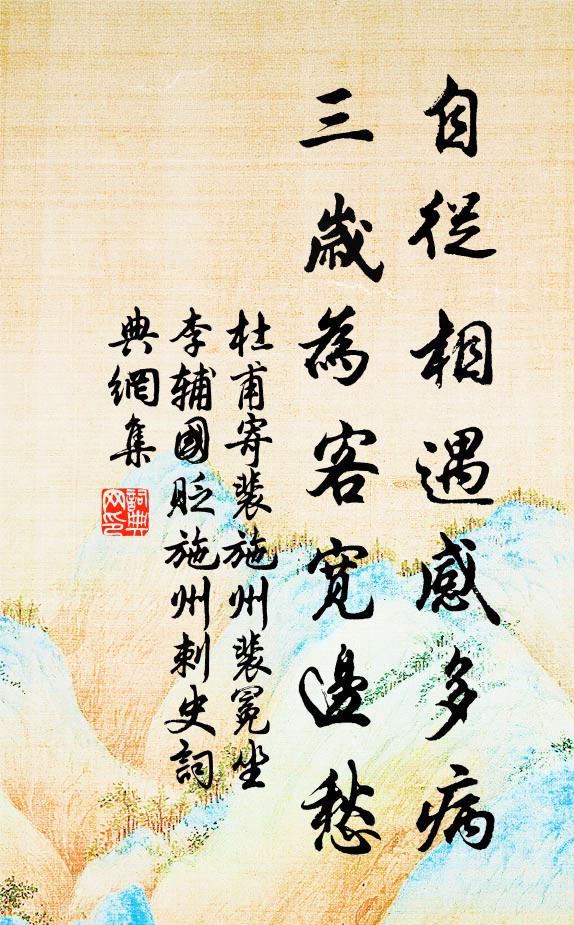 自從相遇感多病
三歲為客寬邊愁
杜甫寄裴施州裴冕坐
李辅國貶施州刺史詞
典網集
詞典
网印